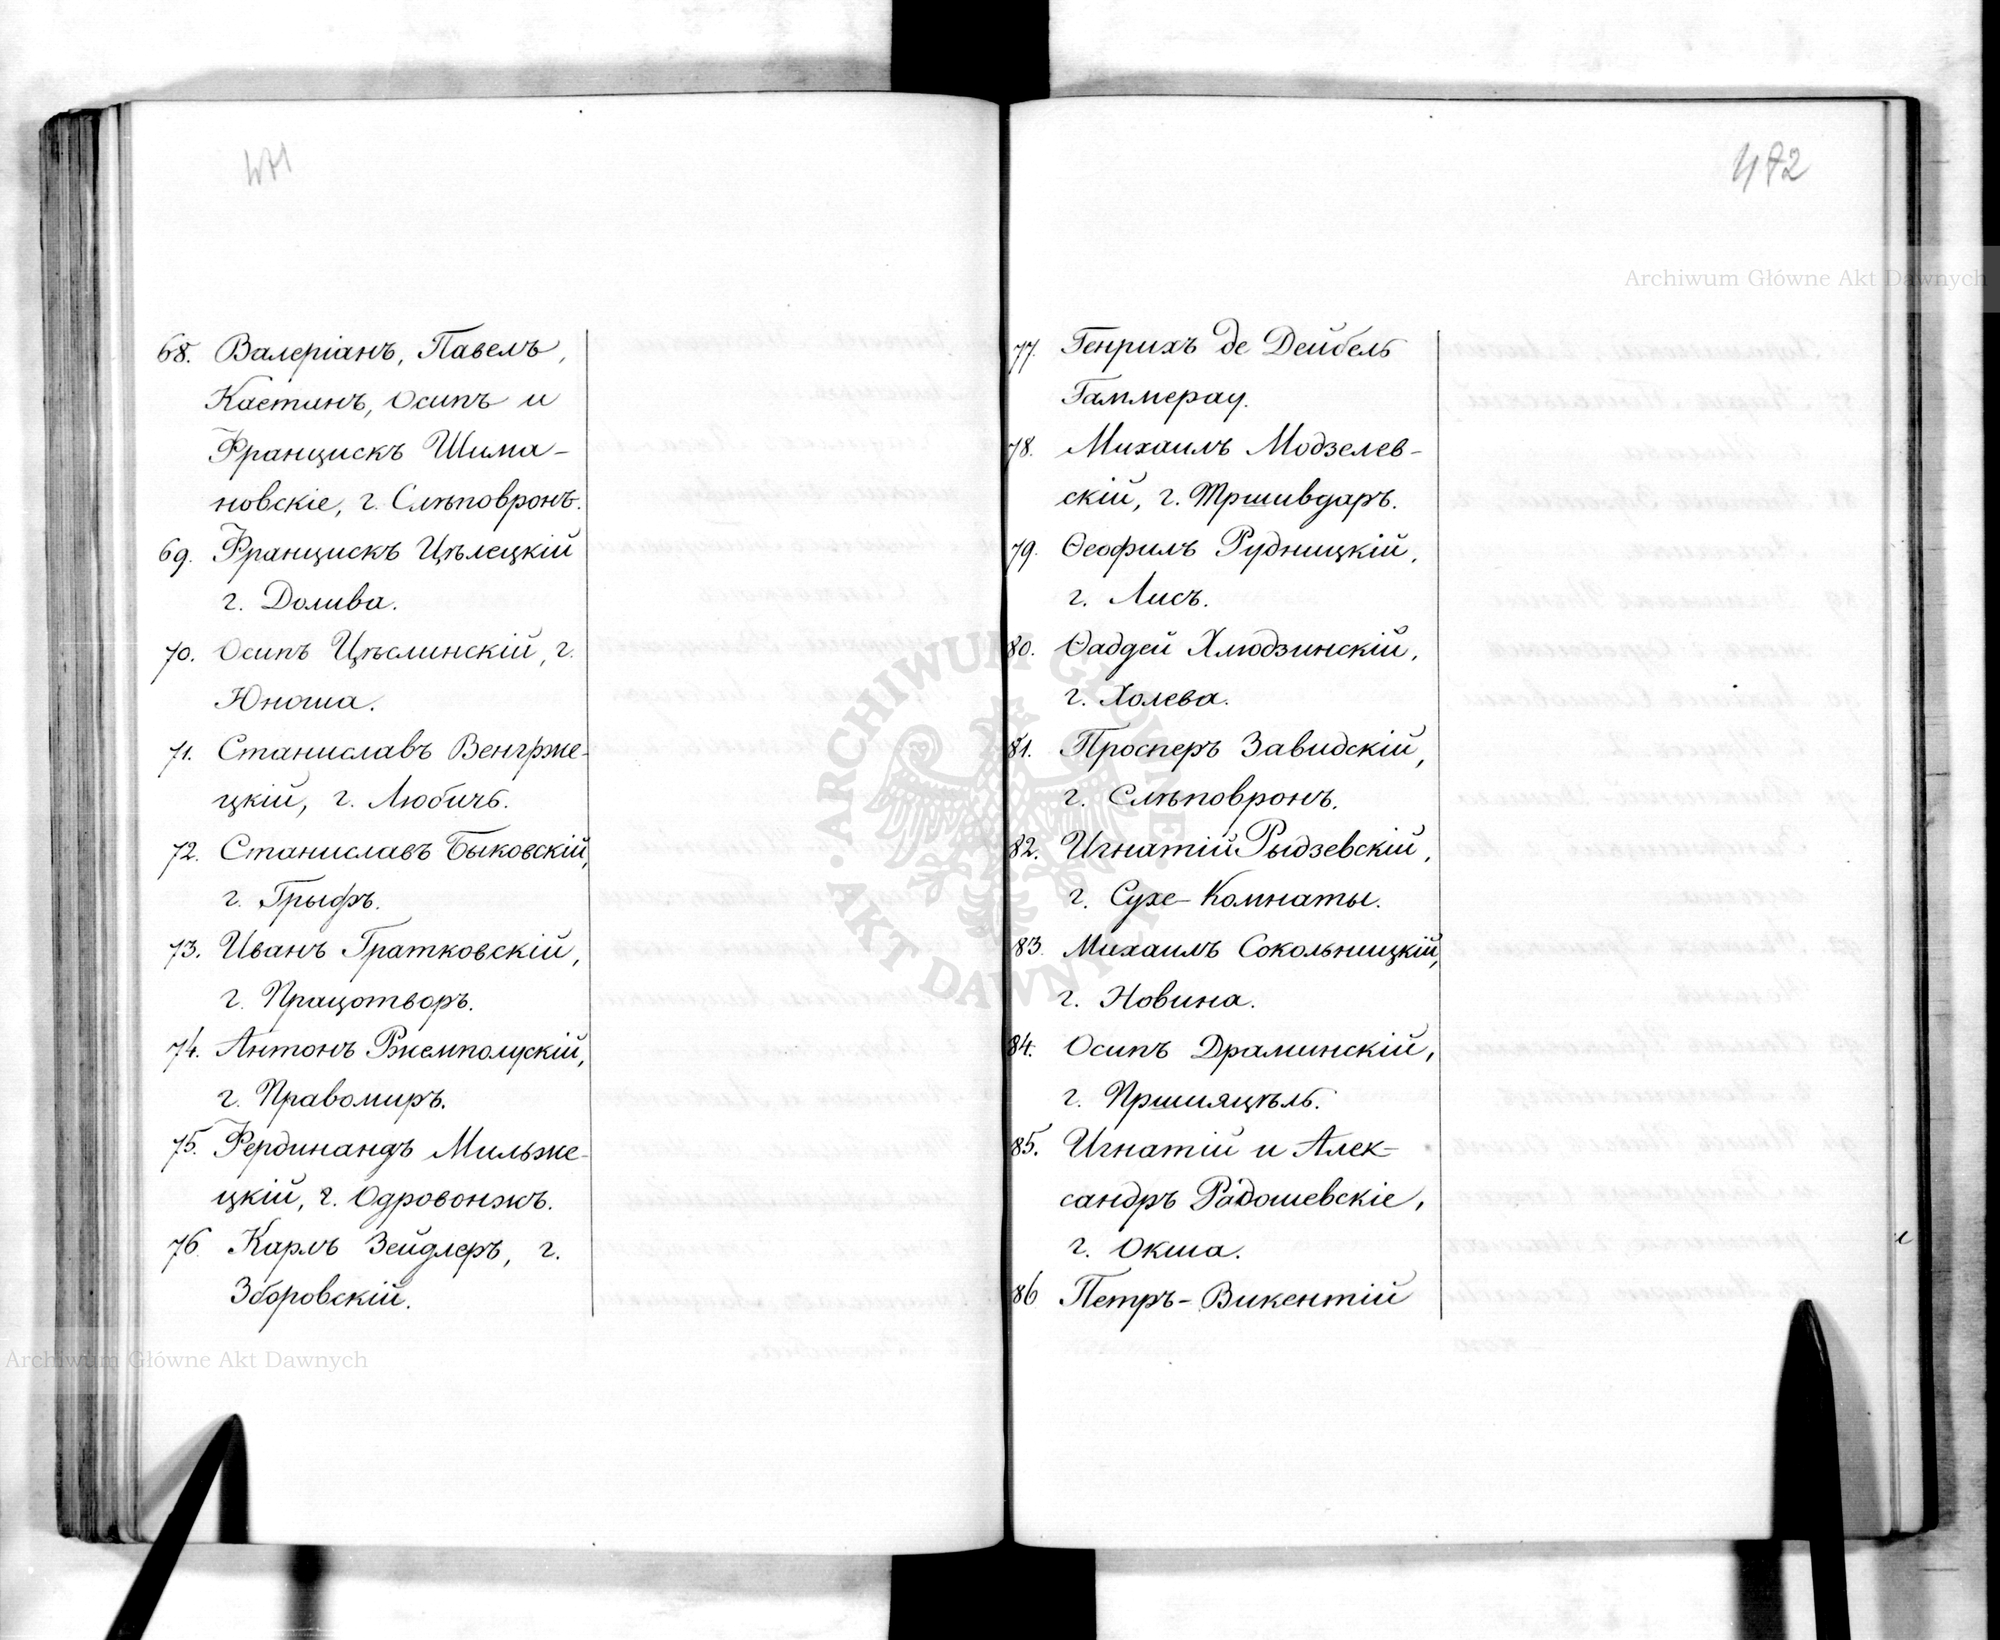 471
68. Валеріанъ, Павелъ,
Каетанъ, Осипъ и
Францискъ Шима-
новскіе, г. Слѣповронъ.
69. Францискъ Цѣлецкій
г. Долива.
70. Осипъ Цѣслинскій, г.
Юноша.
71. Станиславъ Венгрже-
цкій, г. Любичъ.
72. Станиславъ Быковскій,
г. Грыфъ.
73. Иванъ Гратковскій,
г. Працотворъ.
74. Антонъ Ржемполускій,
г. Правомиръ.
75. Фердинандъ Мильже-
цкій, г. Одровонжъ.
76. Карлъ Зейдлеръ, г.
Зборовскій.
472
77. Генрихъ де Дейбель
Гаммерау.
78. Михаилъ Модзелев-
скій, г. Тршивдаръ.
79. Ѳеофилъ Рудницкій,
г. Лисъ.
80. Ѳаддей Хлюдзинскій,
г. Холева.
81. Просперъ Завидскій,
г. Слѣповронъ.
82. Игнатій Рыдзевскій,
г. Сухе-Комнаты.
83. Михаилъ Сокольницкій,
г. Новина.
84. Осипъ Драминскій,
г. Пршияцѣль.
85. Игнатій и Алек-
сандръ Радошевскіе,
г. Окша.
86 Петръ-Викентій
Archiwum Główne Akt Dawnych
ARCHIWUM GŁÓWNE AKT DAWNYCH
Archiwum Główne Akt Dawnych